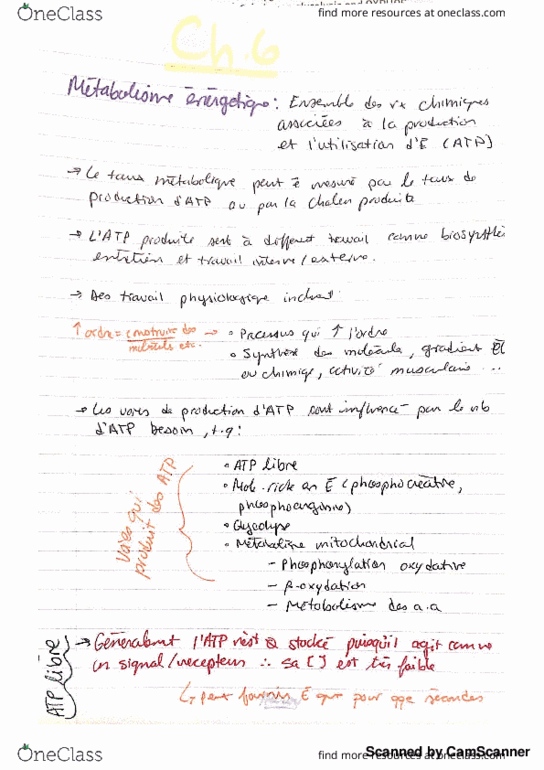 OneClass
find more resources at oneclass.com
Ch.6
Métabolisme énergétique : Ensemble des rx chimiques
associées à la production
et l'utilisation d'E (ATP)
→ Le taux métabolique peut ê mesuré par le taux de
production d'ATP ou par la chaleur produite
→ L'ATP produite sert à différent travail comme biosynthèse
entretien et travail interne/externe.
→ Des travail physiologique incluent
↑ ordre = construire des → • Processus qui ↑ l'ordre
molécules etc.
• Synthèse des molécule, gradient Él
ou chimique, activité musculaire ...
→ Les voies de production d'ATP sont influencé par le nb
d'ATP besoin, t.q :
Voies qui
produit des ATP
• ATP libre
• Mol. riche en E (phosphocréatine,
phosphoarginine)
• Glycolyse
• Métabolisme mitochondrial
- Phosphorylation oxydative
- β-oxydation
- Métabolisme des a.a
ATP libre
→ Généralement l'ATP n'est stocké puisqu'il agit comme
un signal/récepteur ∴ sa [ ] est très faible
↳ peut fournir E que pour qqe secondes
OneClass
find more resources at oneclass.com
Scanned by CamScanner